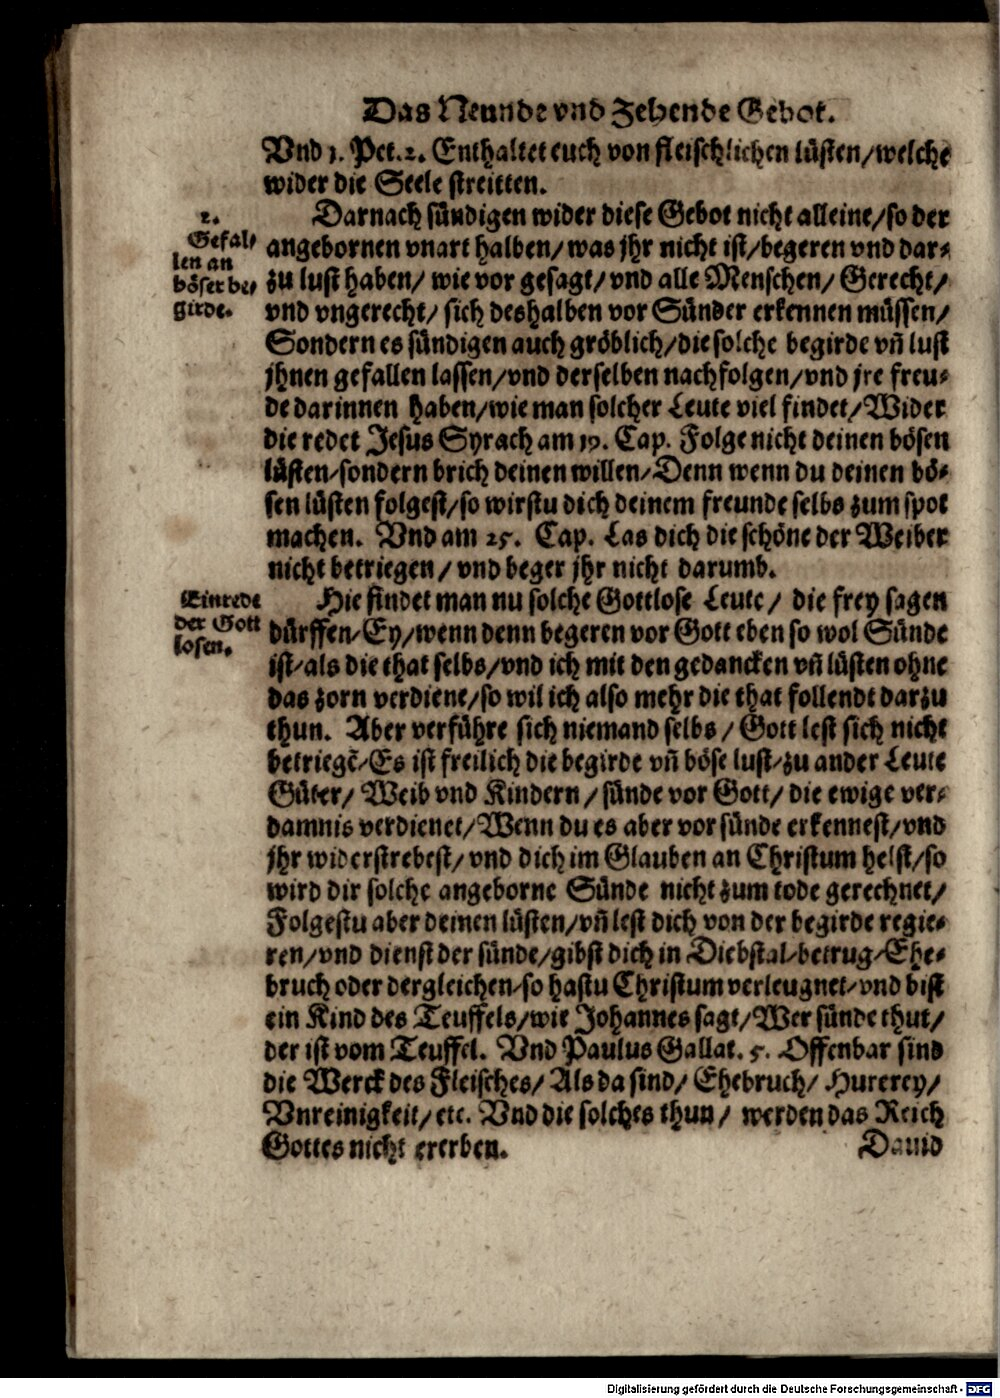 Das Neunde vnd Zehende Gebot.
Vnd 1. Pet. 2. Enthaltet euch von fleischlichen lüsten/welche
wider die Seele streitten.
2.
Gefal/
len an
böser be/
girde.
Darnach sündigen wider diese Gebot nicht alleine/so der
angebornen vnart halben/was jhr nicht ist/begeren vnd dar⸗
zu lust haben/ wie vor gesagt/vnd alle Menschen/ Gerecht/
vnd vngerecht/ sich deshalben vor Sünder erkennen müssen/
Sondern es sündigen auch gröblich/die solche begirde vñ lust
jhnen gefallen lassen/vnd derselben nachfolgen/vnd jre freu⸗
de darinnen haben/wie man solcher Leute viel findet/Wider
die redet Jesus Syrach am 19. Cap. Folge nicht deinen bösen
lüsten/sondern brich deinen willen/Denn wenn du deinen bö⸗
sen lüsten folgest/so wirstu dich deinem freunde selbs zum spot
machen. Vnd am 25. Cap. Las dich die schöne der Weiber
nicht betriegen/ vnd beger jhr nicht darumb.
Einrede
der Gott
losen.
Hie findet man nu solche Gottlose Leute/ die frey sagen
dürffen/Ey/wenn denn begeren vor Gott eben so wol Sünde
ist/als die that selbs/vnd ich mit den gedancken vñ lüsten ohne
das zorn verdiene/so wil ich also mehr die that follendt darzu
thun. Aber verführe sich niemand selbs/ Gott lest sich nicht
betriegē/Es ist freilich die begirde vñ böse lust/zu ander Leute
Güter/ Weib vnd Kindern/ sünde vor Gott/ die ewige ver⸗
damnis verdienet/Wenn du es aber vor sünde erkennest/vnd
jhr widerstrebest/ vnd dich im Glauben an Christum helst/so
wird dir solche angeborne Sünde nicht zum tode gerechnet/
Folgestu aber deinen lüsten/vñ lest dich von der begirde regie⸗
ren/vnd dienst der sünde/gibst dich in Diebstal/betrug/Ehe⸗
bruch oder dergleichen/so hastu Christum verleugnet/vnd bist
ein Kind des Teuffels/wie Johannes sagt/Wer sünde thut/
der ist vom Teuffel. Vnd Paulus Gallat. 5. Offenbar sind
die Werck des Fleisches/ Als da sind/ Ehebruch/ Hurerey/
Vnreinigkeit/etc. Vnd die solches thun/ werden das Reich
Gottes nicht ererben.
Dauid
Digitalisierung gefördert durch die Deutsche Forschungsgemeinschaft - DFG